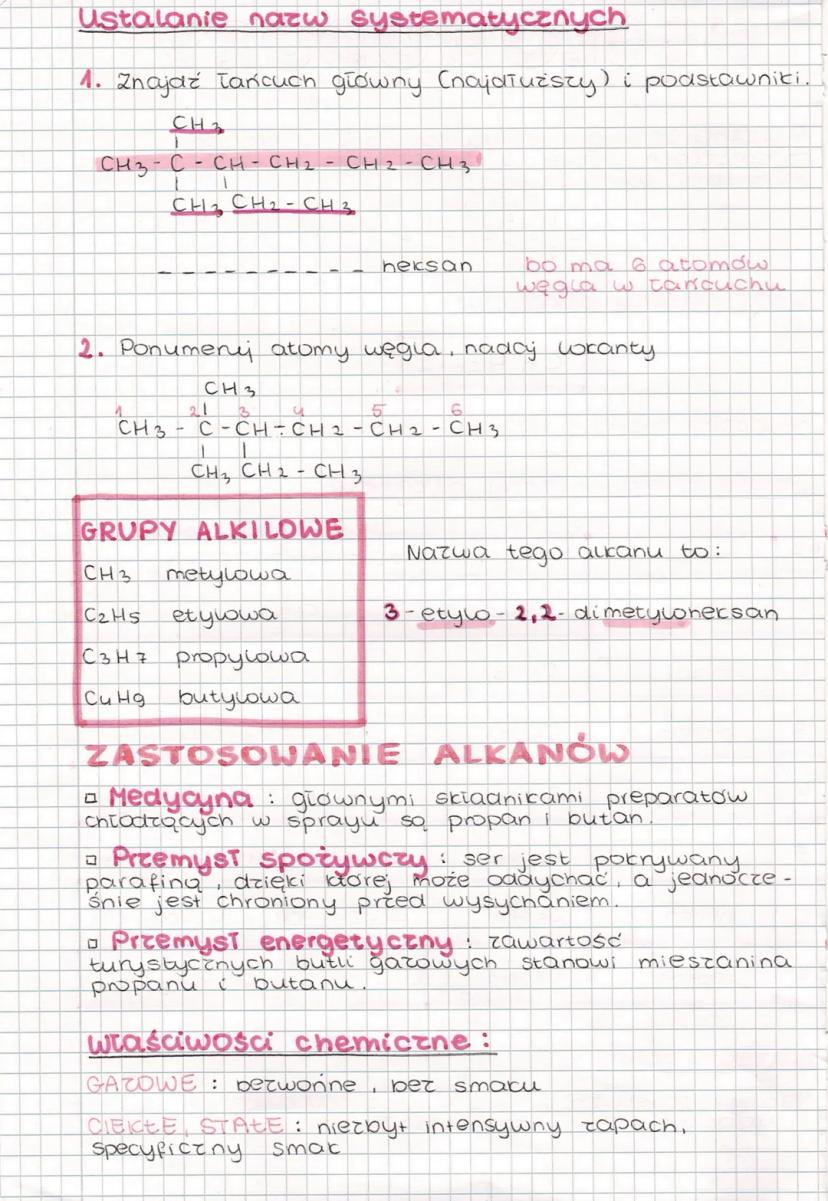 Ustalanie nazw systematycznych
1. Znajdź łańcuch główny (najdłuższy) i podstawniki.
CH3
CH3 - C - CH - CH2 - CH2 - CH3
CH3 CH2 - CH3
_ _ _ _ _ _ _ _ _ _ heksan bo ma 6 atomów
węgla w łańcuchu
2. Ponumeruj atomy węgla, nadaj lokanty
CH3
1 2 3 4 5 6
CH3 - C - CH - CH2 - CH2 - CH3
CH3 CH2 - CH3
GRUPY ALKILOWE
CH3 metylowa
C2H5 etylowa
C3H7 propylowa
C4H9 butylowa
Nazwa tego alkanu to:
3-etylo-2,2-dimetyloheksan
ZASTOSOWANIE ALKANÓW
▫ Medycyna : głównymi składnikami preparatów
chłodzących w sprayu są propan i butan.
▫ Przemysł spożywczy : ser jest pokrywany
parafiną, dzięki której może oddychać, a jednocze-
śnie jest chroniony przed wysychaniem.
▫ Przemysł energetyczny : zawartość
turystycznych butli gazowych stanowi mieszanina
propanu i butanu.
Właściwości chemiczne :
GAZOWE : bezwonne, bez smaku
CIEKŁE, STAŁE : niezbyt intensywny zapach,
specyficzny smak